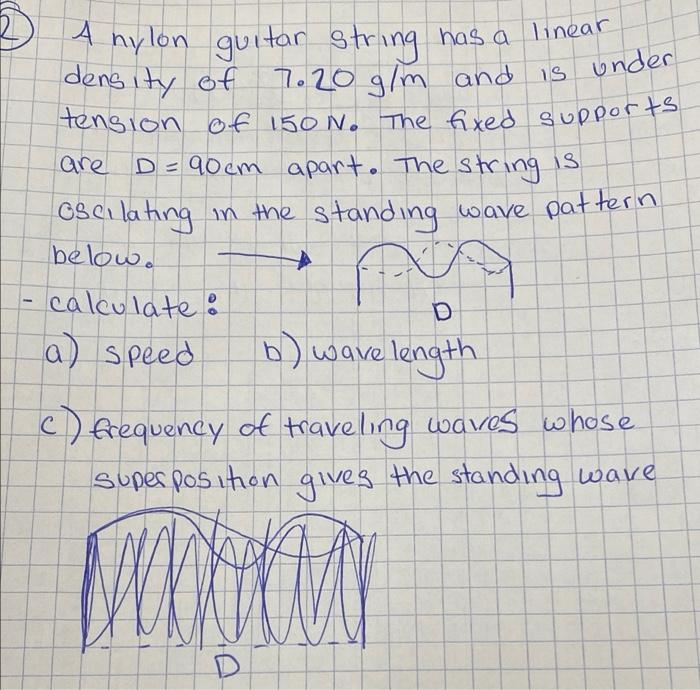 2 A nylon guitar string has a linear
density of 7.20 g/m and is under
tension of 150 N. The fixed supports
are D = 90cm apart. The string is
oscilating in the standing wave pattern
below.
D
- calculate:
a) speed b) wavelength
c) frequency of traveling waves whose
superposition gives the standing wave
D